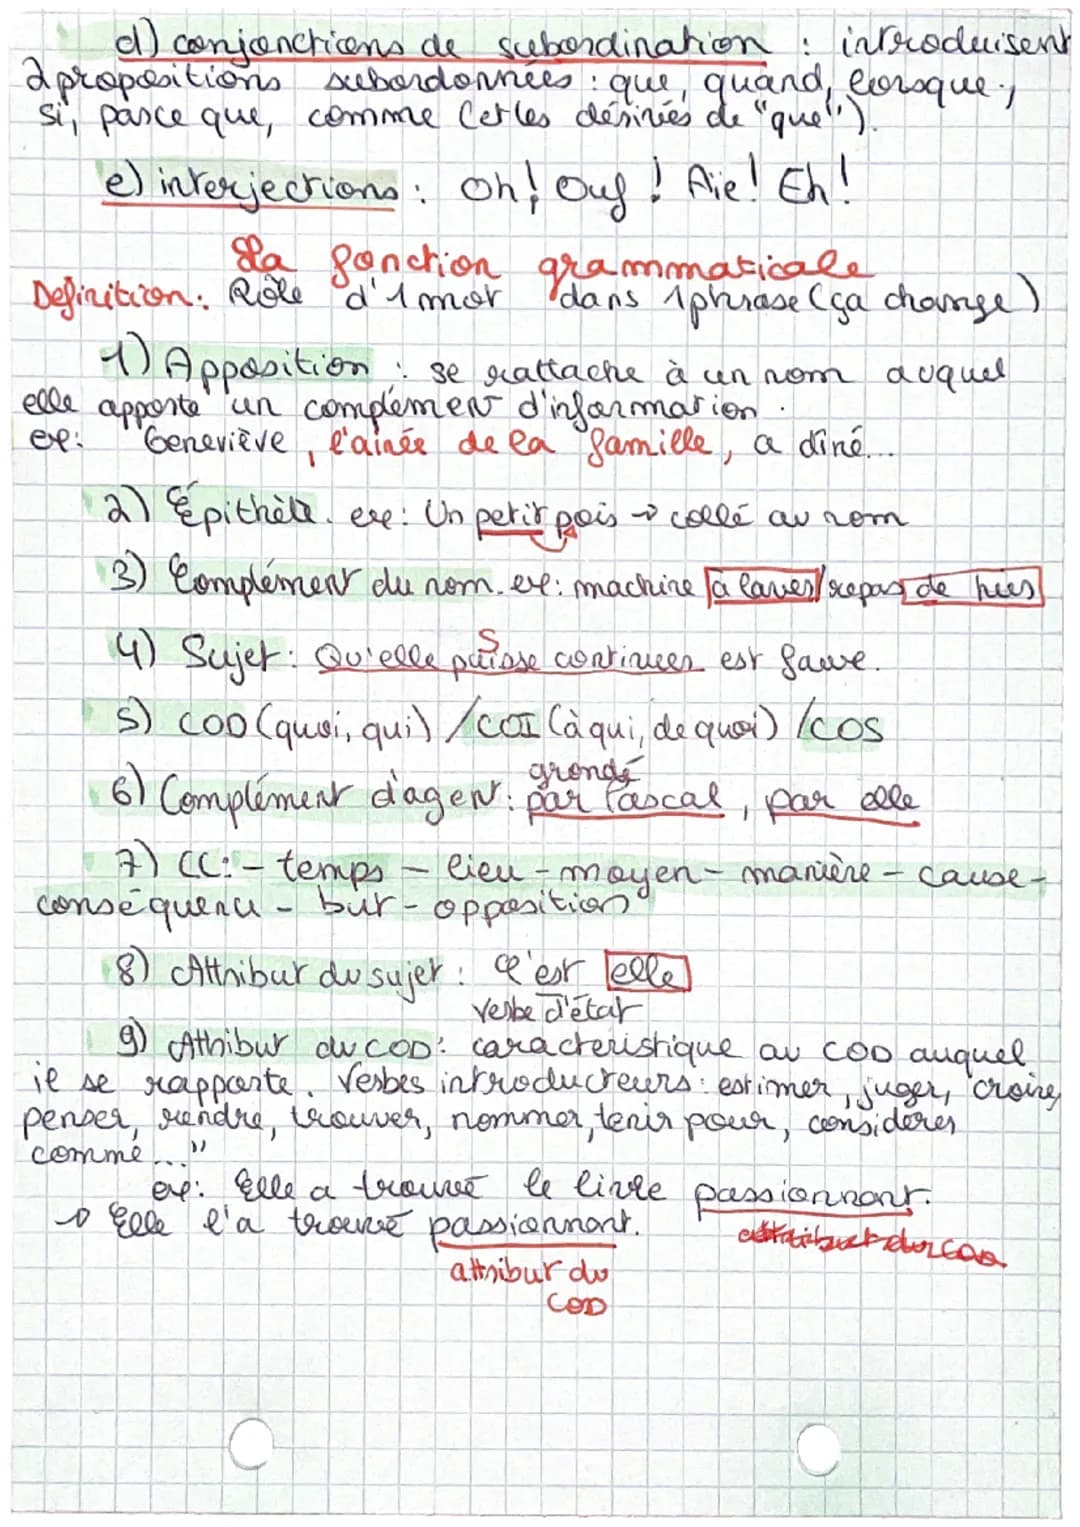 d) conjonctions de subordination : introduisent
2 propositions subordonnées : que, quand, lorsque,
si, parce que, comme (et les dérivés de "que").
e) interjections : Oh! Ouf! Aïe! Eh!
La fonction grammaticale
Definition: Rôle d'1 mot dans 1 phrase (ça change)
1) Apposition : se rattache à un nom auquel
elle apporte un complément d'information.
ex: Geneviève, l'ainée de la famille, a dîné...
2) Épithète. ex: Un petit pois → collé au nom
3) Complément du nom. ex: machine à laver/repas de hier
S
4) Sujet: Qu'elle puisse continuer est fauve.
5) COD (quoi, qui) /COI (à qui, de quoi) /COS
grondé
6) Complément d'agent: par Pascal, par elle
7) CC: - temps - lieu - moyen - manière - cause -
conséquence - but - opposition
8) Attribut du sujet : C'est elle
verbe d'état
9) Attribut du COD: caractéristique au COD auquel
il se rapporte. Verbes introducteurs: estimer, juger, croire,
penser, rendre, trouver, nommer, tenir pour, considérer
comme..."
ex: Elle a trouvé le livre passionnant.
→ Elle l'a trouvé passionnant.
attribut du COD
attribut du
COD